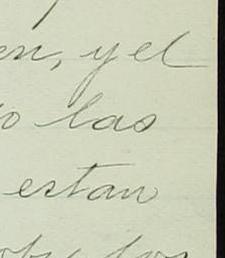 en, y el
o las
estan